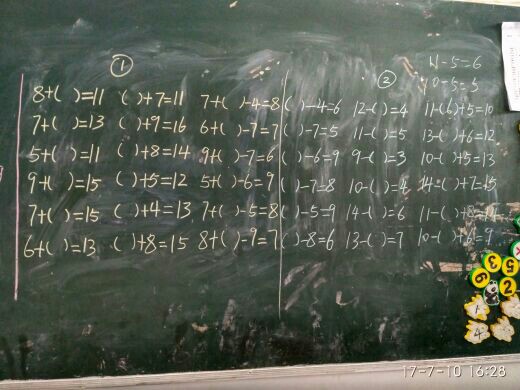 ① ② 11-5=6
10-5=5
8+( )=11 ( )+7=11 7+( )-4=8 ( )-4=6 12-( )=4 11-(6)+5=10
7+( )=13 ( )+9=16 6+( )-7=7 ( )-7=5 11-( )=5 13-( )+6=12
5+( )=11 ( )+8=14 9+( )-7=6 ( )-6=9 9-( )=3 10-( )+5=13
9+( )=15 ( )+5=12 5+( )-6=9 ( )-7=8 10-( )=4 14-( )+7=15
7+( )=15 ( )+4=13 7+( )-5=8 ( )-5=9 14-( )=6 11-( )+8=
6+( )=13 ( )+8=15 8+( )-9=7 ( )-8=6 13-( )=7 10-( )+6=9
6 3 5
2
1
4
17-7-10 16:28